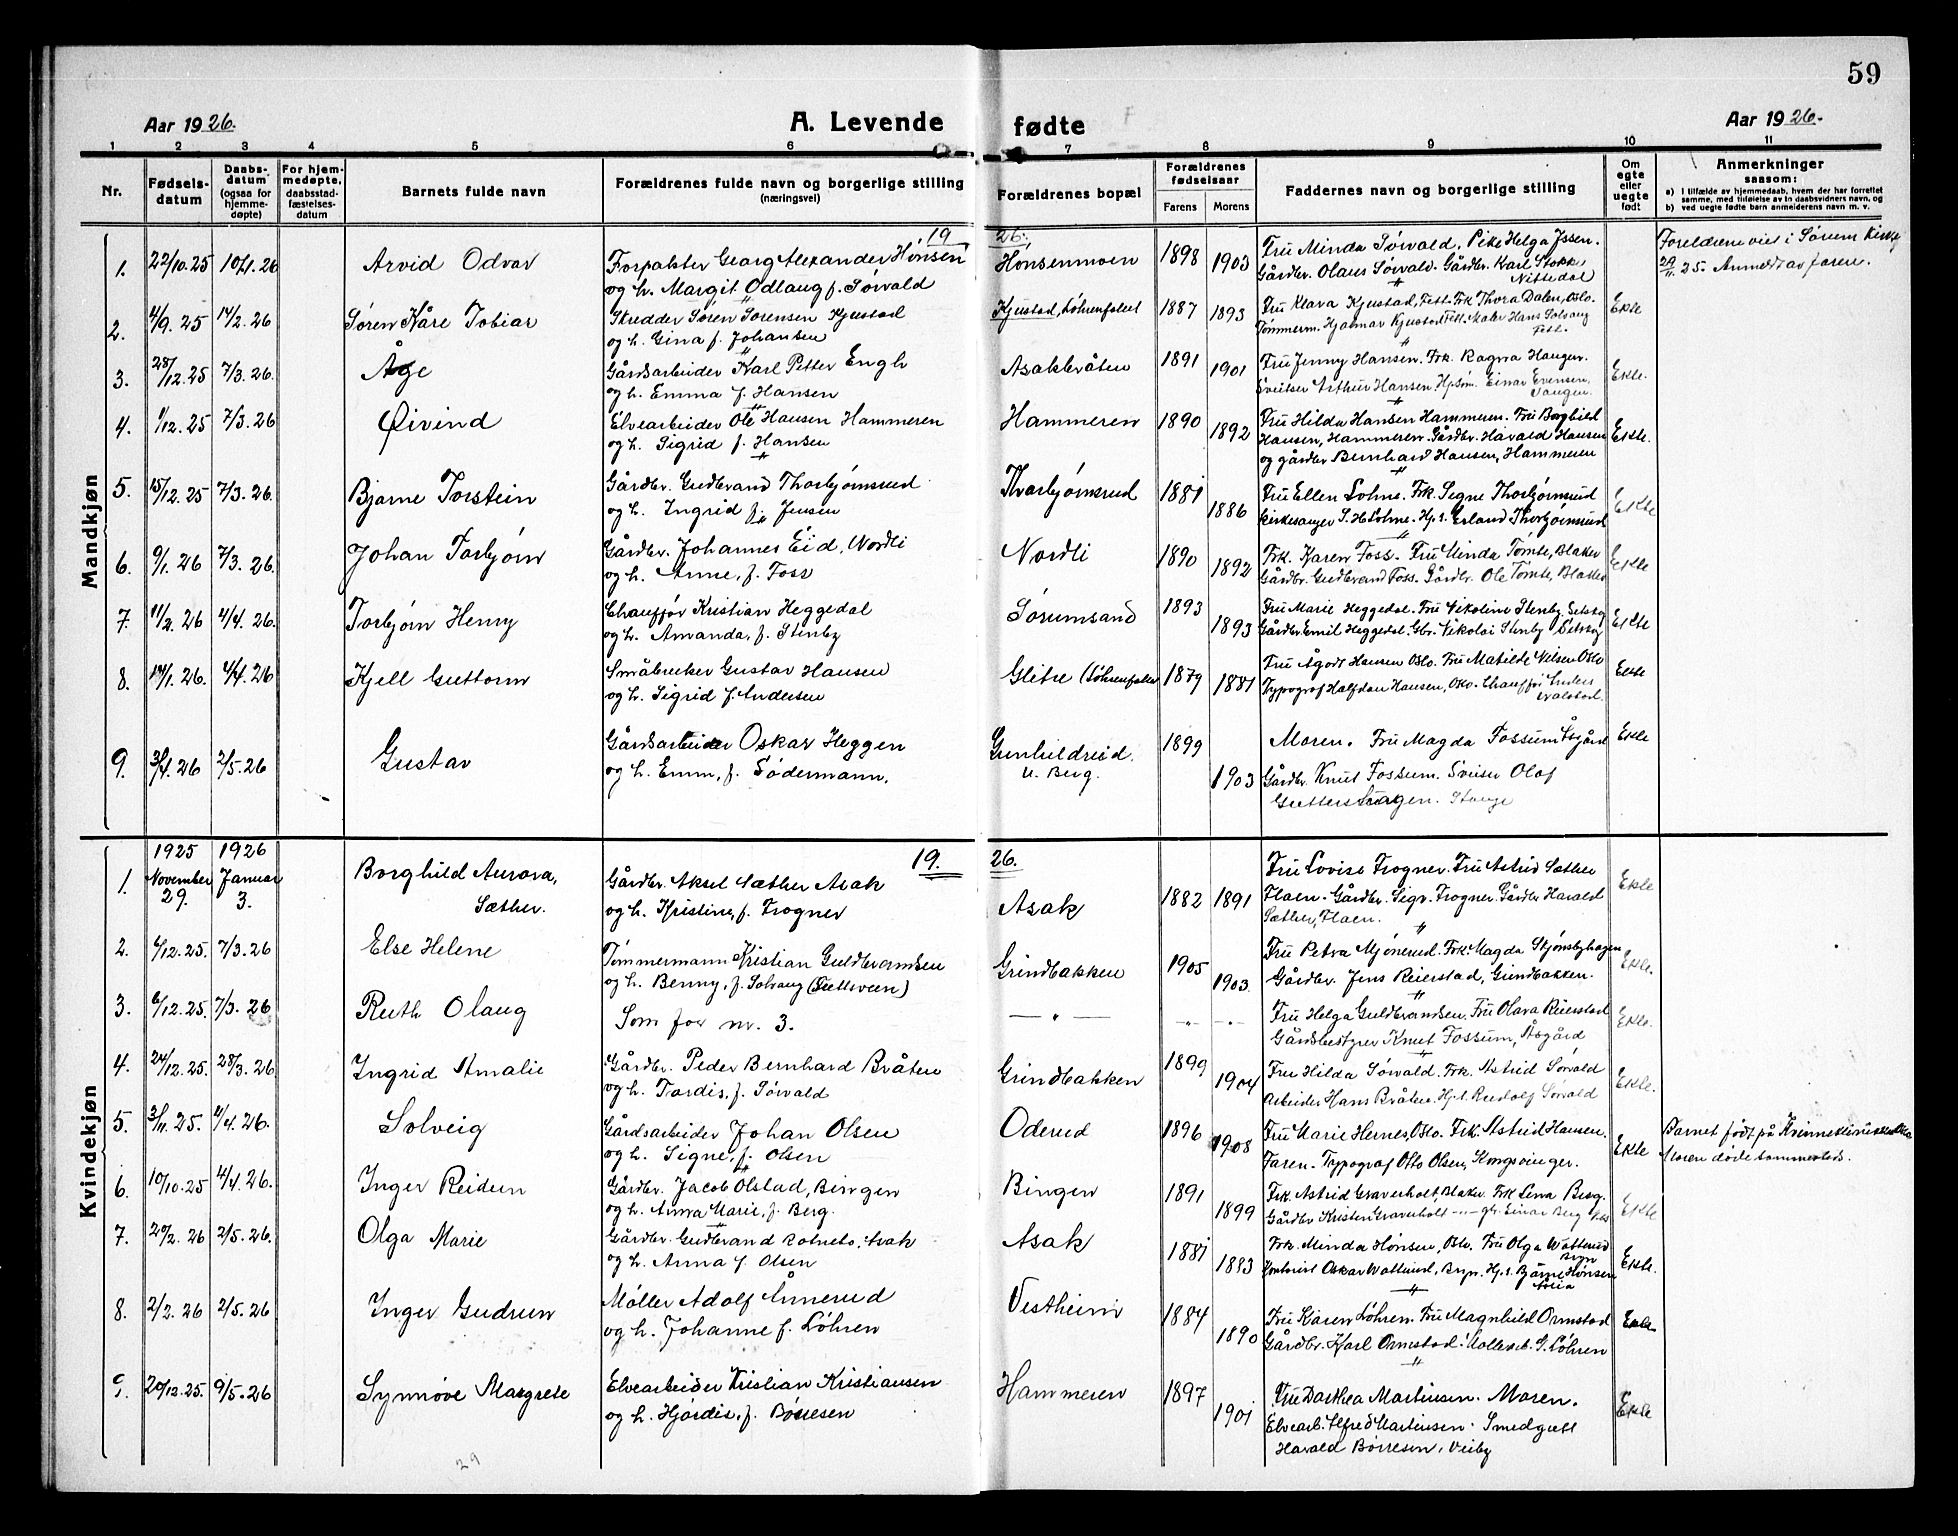 59
Aar 1926.
A. Levende fødte
Aar 1926.
1 2 3 4 5 6 7 8 9 10 11
Nr.
Fødsels-datum
Daabs-datum (ogsaa for hjemme-døpte)
For hjem-medøpte, daabsstad-fæstelses-datum
Barnets fulde navn
Forældrenes fulde navn og borgerlige stilling (næringsvei)
Forældrenes bopæl
Forældrenes fødselsaar
Farens Morens
Faddernes navn og borgerlige stilling
Om egte eller uegte født
Anmerkninger saasom:
a) I tilfælde av hjemmedaab, hvem der har forrettet samme, med tilføielse av to daabsvidners navn, og
b) ved uegte fødte barn anmelderens navn m. v.
Mandkjøn
19 26.
1. 22/10.25 10/1.26 Arvid Odvar
Forpakter Georg Alexander Hønsen
og h. Margit Odlaug f. Sørvald
Hønsenmoen 1898 1903
Fru Minda Sørvald. Pike Helga Issen.
Gårdbr. Olaus Sørvald. Gårdbr. Karl Stokk
Nittedal
Foreldrene viet i Sørum Kirke
29/11. 25. Anmeldt av faren.
2. 4/9. 25 14/2. 26 Søren Kåre Tobias
Skredder Søren Sørensen Kjustad
og h. Gina f. Johansen
Kjustad, Løhrenfallet 1887 1893
Fru Klara Kjustad, Fett. Frk Thora Dalen, Oslo.
Tømmerm. Hjalmar Kjustad Fett. Maler Hans Solvang
Fett.
Ekte
3. 28/12.25 7/3. 26. Åge
Gårdsarbeider Karl Petter Engh
og h. Emma f. Hansen
Asakbråten 1891 1901
Fru Jenny Hansen. Frk. Ragna Haugen.
Sveitser Arthur Hansen. Hpsøn. Einar Evensen,
Ekte.
4. 1/12. 25 7/3. 26 Øivind
Elvearbeider Ole Hansen Hammeren
og h. Sigrid f. Hansen
Hammeren 1890 1892
Fru Hilda Hansen Hammeren. Fru Borghild
Hansen, Hammeren. Gårdbr. Harald Hansen
og gårdbr Bernhard Hansen, Hammeren
Ekte.
5. 15/12.25 7/3. 26. Bjarne Torstein
Gårdbr. Gudbrand Thorbjørnsrud
og h. Ingrid f. Jensen
Thorbjørnsrud 1881 1886
Fru Ellen Lohne. Frk. Signe Thorbjørnsrud
Kirkesanger S. H. Lohne. Hp. s. Erland Thorbjørnsrud
Ekte
6. 9/1. 26 7/3. 26. Johan Torbjørn
Gårdbr. Johannes Eid, Nordli
og h. Anne, f. Foss
Nordli 1890 1892
Frk. Karen Foss. Fru Minda Tømte, Blaker
Gårdbr. Gudbrand Foss. Gårdbr. Ole Tømte, Blaker
Ekte
7. 11/2. 26 4/4. 26. Torbjørn Henry
Chauffør Kristian Heggedal
og h. Amanda, f. Stenby
Sørumsand 1893 1893
Fru Marie Heggedal. Fru Nikoline Stenby Setskog
Gårdbr. Emil Heggedal. Gbr. Nikolai Stenby Setskog
Ekte
8. 14/1. 26. 4/4. 26 Kjell Guttorm
Småbruker Gustav Hansen
og h. Sigrid f. Andersen
Glitre (Løhrenfallet 1879 1881
Fru Ågot Hansen Oslo. Fru Matilde Nilsen Oslo
Typograf Halfdan Hansen, Oslo. Chauffør
Ekte
9. 3/1. 26 2/5. 26 Gustav
Gårdsarbeider Oskar Heggen
og h. Emm, f. Södermann.
Gunhildrud u. Berg. 1899 1903
Moren. Fru Magda Fossum Åsgård
Gårdbr. Knut Fossum. Sveiser Olof
Stange
Ekte
Kvindekjøn
1925 1926 19. 26.
1. November 29. Januar 3. Borghild Aurora, Sæther.
Gårdbr. Aksel Sæther Asak
og h. Kristine, f. Trogner
Asak 1882 1891
Fru Lovise Trogner. Fru Astrid Sæther
Flaen. Gårdbr. Sigv. Trogner. Gårdbr Harald
Sæther, Flaen.
Ekte
2. 6/12.25. 7/3.26 Else Helene
Tømmermann Kristian Guldbrandsen
og h. Benny, f. Solvang (Siellsveen)
Grindbakken 1905 1903
Fru Petra Mjønerud. Frk. Magda Stjønsbyhagen
Gårdbr. Jens Reierstad, Grindbakken.
Ekte.
3. 6/12.25. 7/3. 26 Ruth Olaug
Som for nr. 3.
— " — - " - - " -
Fru Helga Guldbrandsen. Fru Olava Reierstad
Gårdsbestyrer Knut Fossum, Åsgård
Ekte.
4. 24/12.25. 28/3. 26. Ingrid Amalie
Gårdbr. Peder Bernhard Bråten
og h. Tordis, f. Sørvald
Grindbakken 1899 1904
Fru Hilda Sørvald. Frk. Astrid Sørvald
Arbeider Hans Bråten. Hp. s. Rudolf Sørvald
Ekte.
5. 3/11. 25. 4/4. 26. Solveig
Gårdsarbeider Johan Olsen
og h. Signe, f. Olsen
Oderud 1896 1908
Fru Marie Hernes, Oslo. Frk. Astrid Hansen.
Faren. Typograf Otto Olsen, Kongsvinger.
Ekte
Barnet født på Kvinneklinikken Oslo
Moren døde sammesteds.
6. 10/10.25 4/4.26. Inger Reidun
Gårdbr. Jacob Ølstad, Bingen
og h. Anna Marie, f. Berg.
Bingen 1891 1899
Frk. Astrid Graverholt, Blaker. Frk Lena Berg.
Gårdbr Kristen Graverholt -"- gbr. Einar Berg
Ekte
7. 20/2. 26 2/5.26. Olga Marie
Gårdbr. Gudbrand Rotneto, Asak
og h. Anna f. Olsen
Asak 1881 1883
Frk. Minda Hønsen, Blv. Fru Olga Watterud
Bryn
Kontorist Oskar Watterud, Bryn. Hp. s. Bjarne Hønsen
Ekte.
8. 2/2. 26 2/5. 26 Inger Gudrun
Møller Adolf Ånnerud
og h. Johanne f. Løhren
Vestheim 1884 1890
Fru Karen Løhren. Fru Magnhild Ormstad
Gårdbr. Karl Ormstad. Møllerb. G. Løhren
Ekte
9. 20/12.25. 9/5. 26 Synnøve Margrete
Elvearbeider Kristian Kristiansen
og h. Hjördis, f. Börresen
Hammeren 1897 1901
Fru Dorthea Martinsen. Moren.
Elvearb. Alfred Martinsen. Smedgutt
Harald Börresen, Veiby
Ekte
29